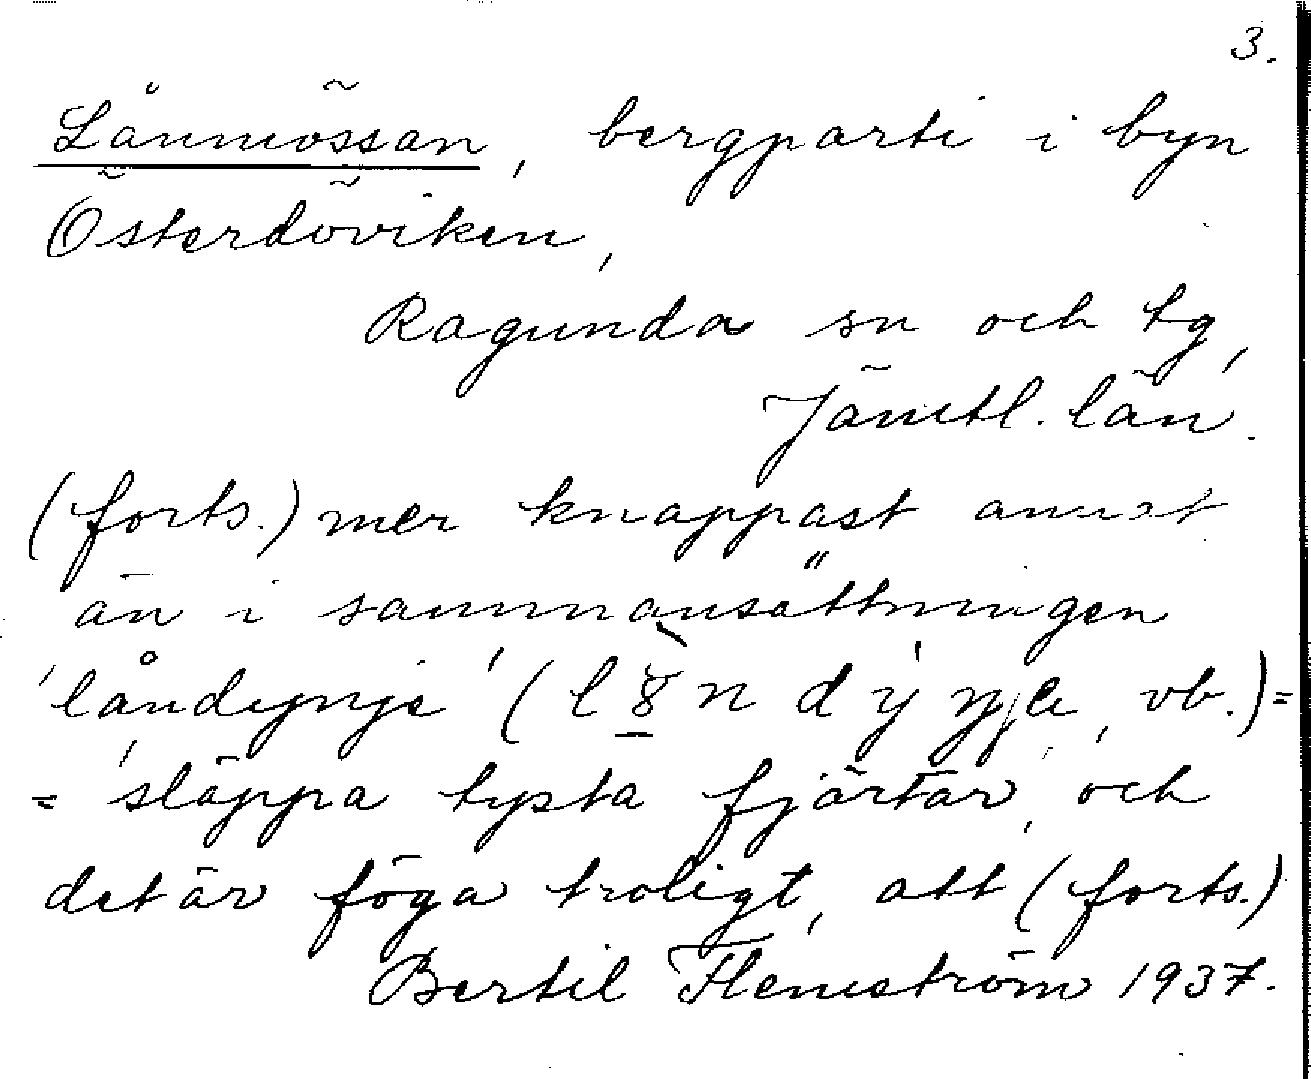 3.
Lånmössan, bergparti i byn
Österdöviken,
Ragunda sn och tg,
Jämtl. län.
(forts.) mer knappast annat
än i sammansättningen
'låndynje' (l8n dýŋje, vb.) =
= 'släppa tysta fjärtar, och
det är föga troligt, att (forts.)
Bertil Flemström 1937.